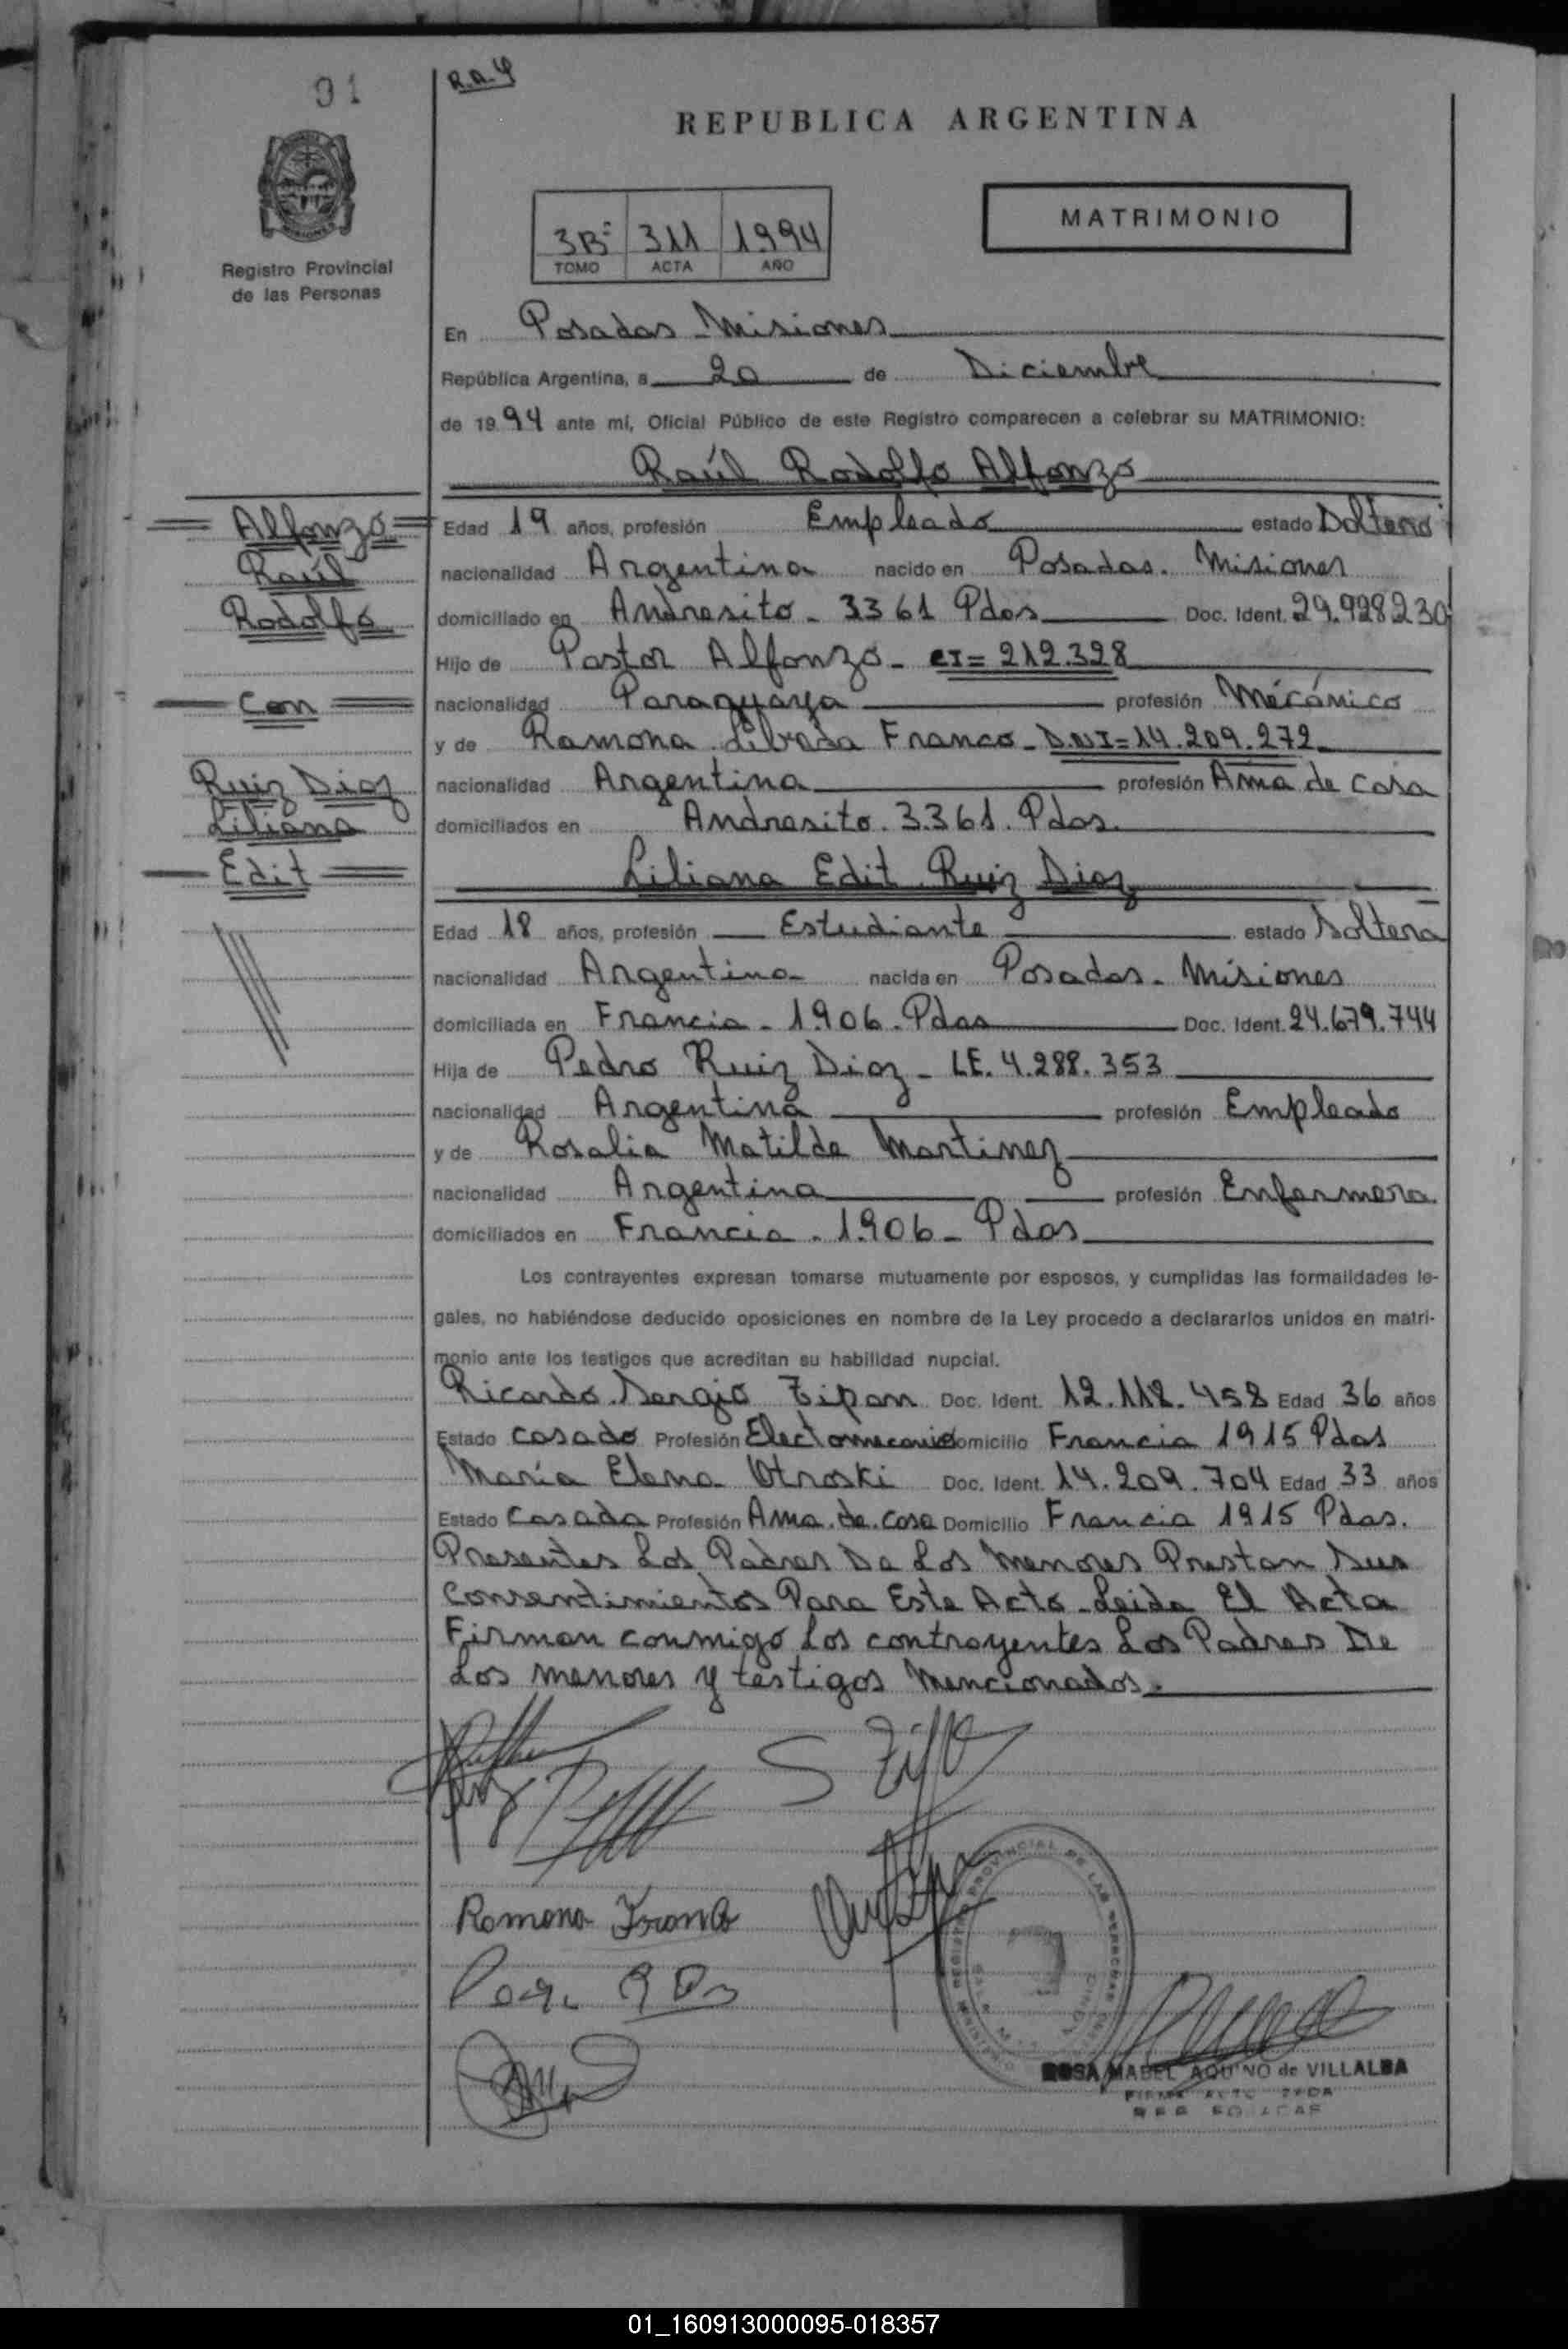 91
R.A.4
REPUBLICA ARGENTINA
MATRIMONIO
3Bº 311 1994
TOMO ACTA AÑO
Registro Provincial
de las Personas
En Posadas - Misiones
República Argentina, a 20 de Diciembre
de 1994 ante mí, Oficial Público de este Registro comparecen a celebrar su MATRIMONIO:
Raúl Rodolfo Alfonzo
Alfonzo
Raúl
Rodolfo
Con
Ruiz Diaz
Liliana
Edit
Edad 19 años, profesión Empleado estado Soltero
nacionalidad Argentina nacido en Posadas. Misiones
domiciliado en Andresito - 3361 Pdas Doc. Ident. 29.928230
Hijo de Pastor Alfonzo - CI = 212.328
nacionalidad Paraguaya profesión Mécánico
y de Ramona Librada Franco - D.N.I = 14.209.272
nacionalidad Argentina profesión Ama de casa
domiciliados en Andresito. 3361. Pdas.
Liliana Edit Ruiz Diaz
Edad 18 años, profesión Estudiante estado Soltera
nacionalidad Argentina nacida en Posadas - Misiones
domiciliada en Francia - 1906. Pdas Doc. Ident. 24.679.744
Hija de Pedro Ruiz Diaz - LE. 4.288.353
nacionalidad Argentina profesión Empleado
y de Rosalia Matilde Martinez
nacionalidad Argentina profesión Enfermera
domiciliados en Francia - 1906 - Pdas
Los contrayentes expresan tomarse mutuamente por esposos, y cumplidas las formalidades le-
gales, no habiéndose deducido oposiciones en nombre de la Ley procedo a declararlos unidos en matri-
monio ante los testigos que acreditan su habilidad nupcial.
Ricardo Sergio Zipan Doc. Ident. 12.118.458 Edad 36 años
Estado Casado Profesión Electomecanico Domicilio Francia 1915 Pdas
María Elena Otroski Doc. Ident. 14.209.704 Edad 33 años
Estado Casada Profesión Ama de Casa Domicilio Francia 1915 Pdas.
Presentes Los Padres De Los Menores Prestan Sus
Consentimientos Para Este Acto - Leida El Acta
Firman conmigo los contrayentes Los Padres De
Los menores y testigos Mencionados.
Ramona Franco
ROSA MABEL AQUINO de VILLALBA
01_160913000095-018357